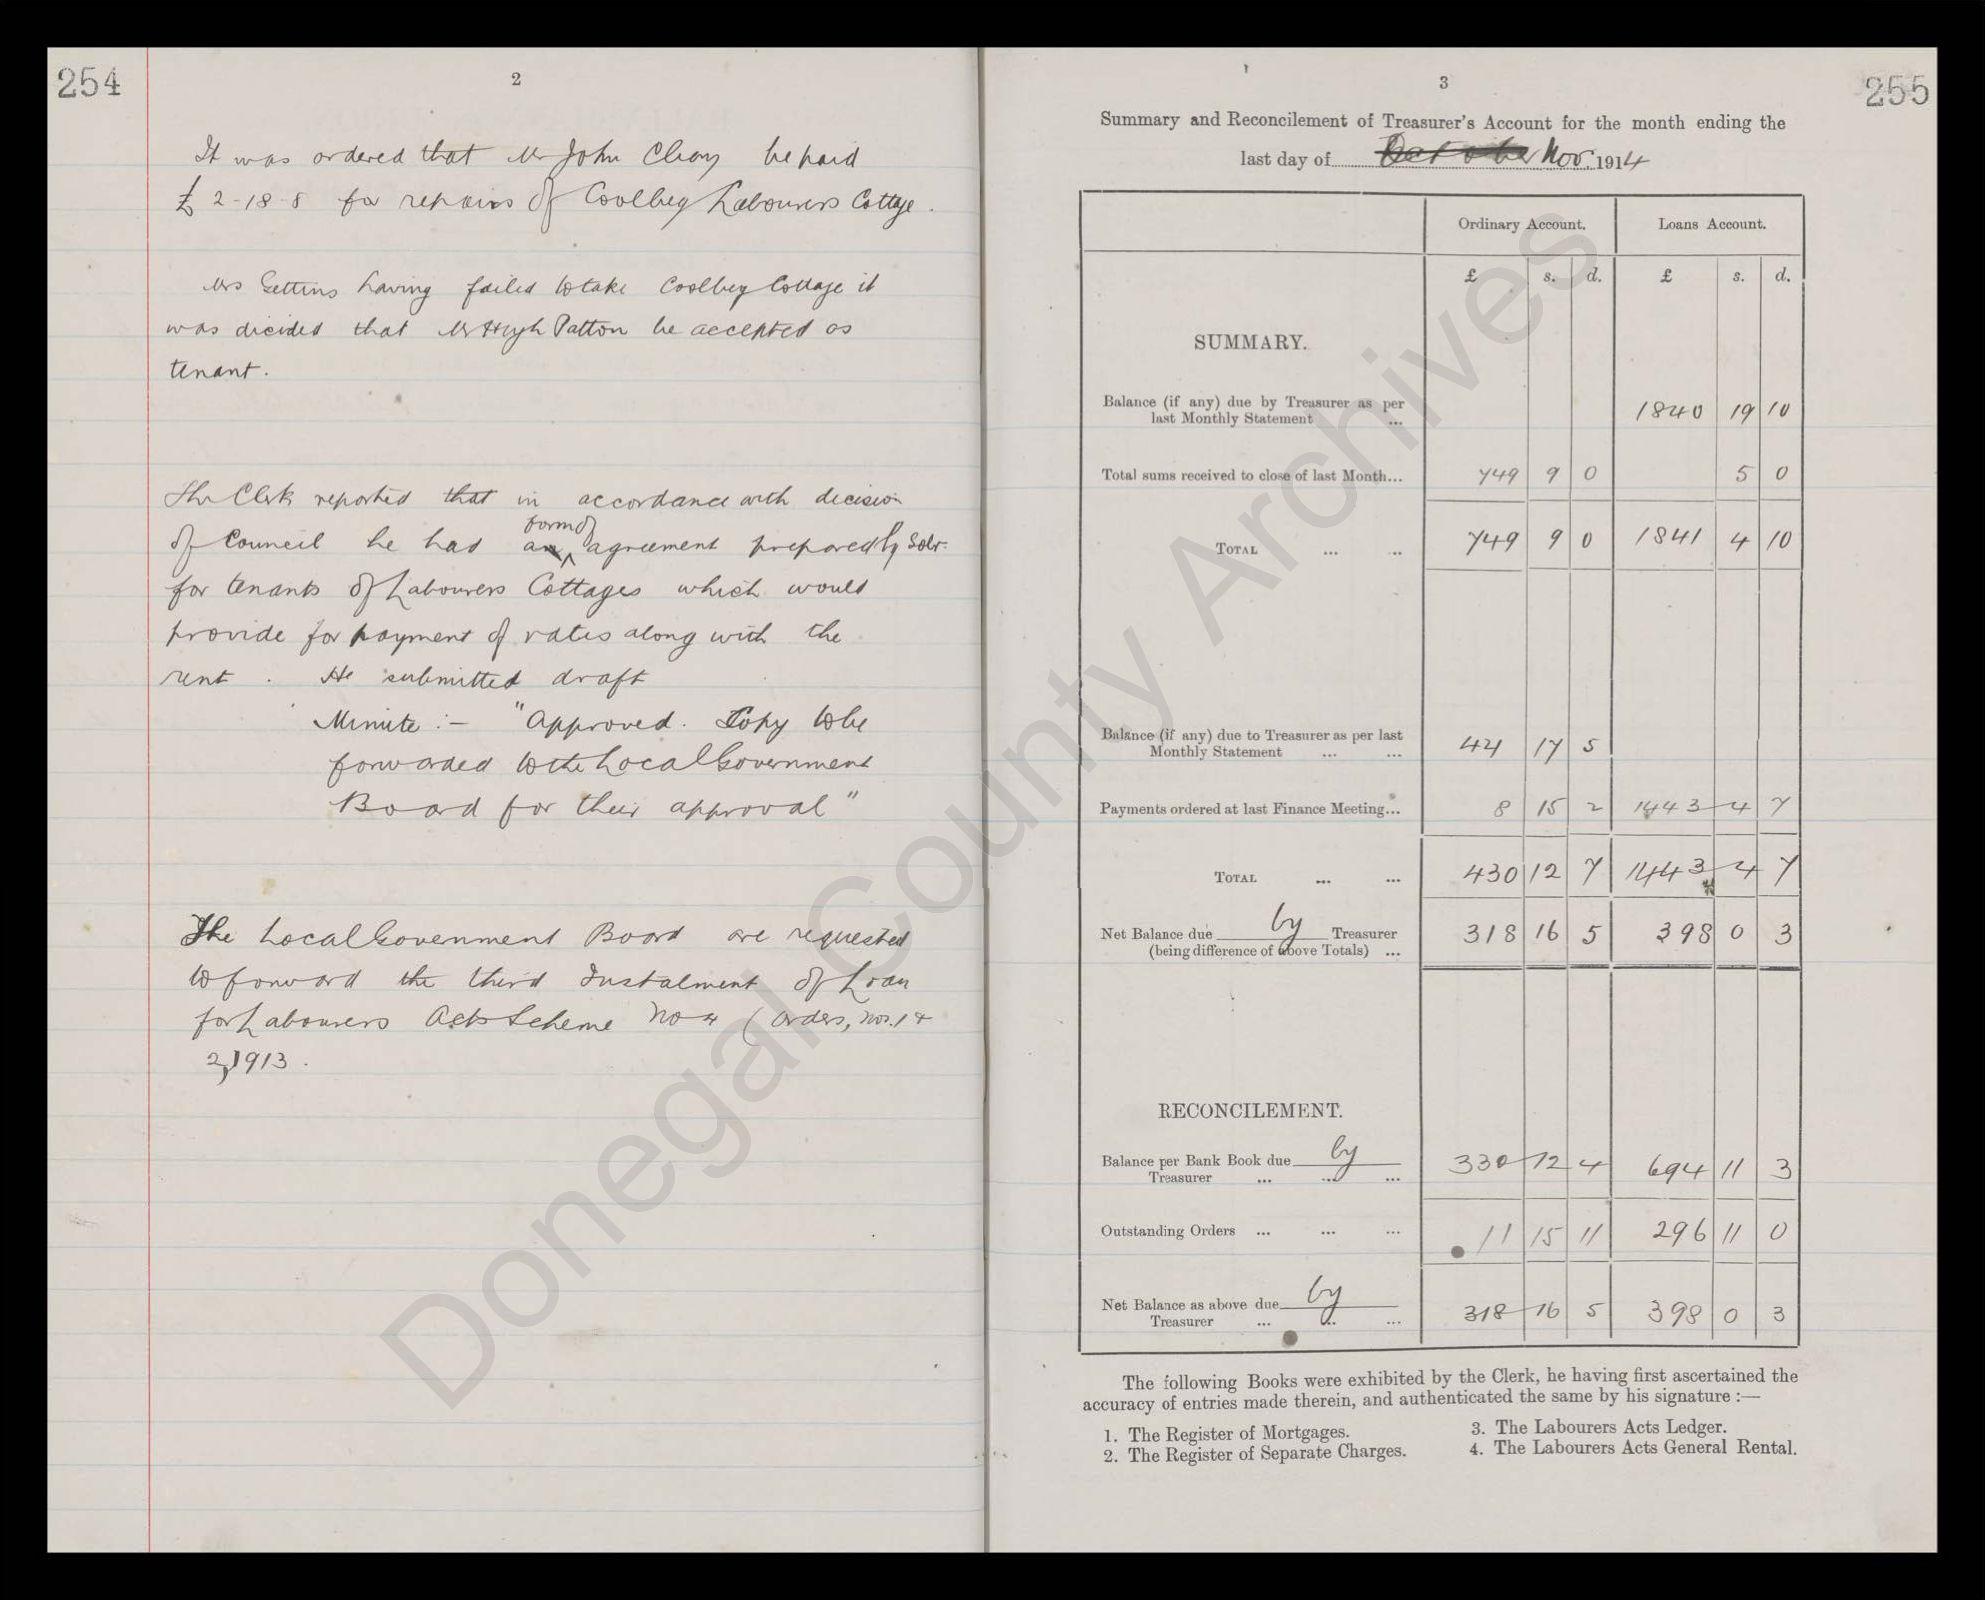 254
2
It was ordered that Mr John be paid
£2-18-8 for repairs of Coolbeg Labourers Cottage.
Mrs Gettins having failed to take Coolbeg Cottage it
was decided that Mr Hugh Patton be accepted as
tenant.
The Clerk reported that in accordance with decision
form of
of Council he had an agreement prepared by Solr.
for tenants of Labourers Cottages which would
provide for payment of rates along with the
rent. He submitted draft
Minute :- "Approved. Copy to be
forwarded to the Local Government
Board for their approval"
The Local Government Board are requested
to forward the third Instalment of Loan
for Labourers Acts Scheme No 4 (Orders, Nos. 1 &
2) 1913.
3
255
Summary and Reconcilement of Treasurer's Account for the month ending the
last day of October Nov. 1914
Ordinary Account. Loans Account.
£ s. d. £ s. d.
SUMMARY.
Balance (if any) due by Treasurer as per
last Monthly Statement ... 1840 19 10
Total sums received to close of last Month... 749 9 0 5 0
TOTAL ... ... 749 9 0 1841 4 10
Balance (if any) due to Treasurer as per last
Monthly Statement ... ... 421 17 5
Payments ordered at last Finance Meeting... 8 15 2 1443 4 7
TOTAL ... ... 430 12 7 1443 4 7
Net Balance due by Treasurer 318 16 5 398 0 3
(being difference of above Totals) ...
RECONCILEMENT.
Balance per Bank Book due by 330 12 4 694 11 3
Treasurer ... ... ...
Outstanding Orders ... ... ... 11 15 11 296 11 0
Net Balance as above due by 318 16 5 398 0 3
Treasurer ... ... ...
The following Books were exhibited by the Clerk, he having first ascertained the
accuracy of entries made therein, and authenticated the same by his signature :—
1. The Register of Mortgages. 3. The Labourers Acts Ledger.
2. The Register of Separate Charges. 4. The Labourers Acts General Rental.
Donegal County Archives